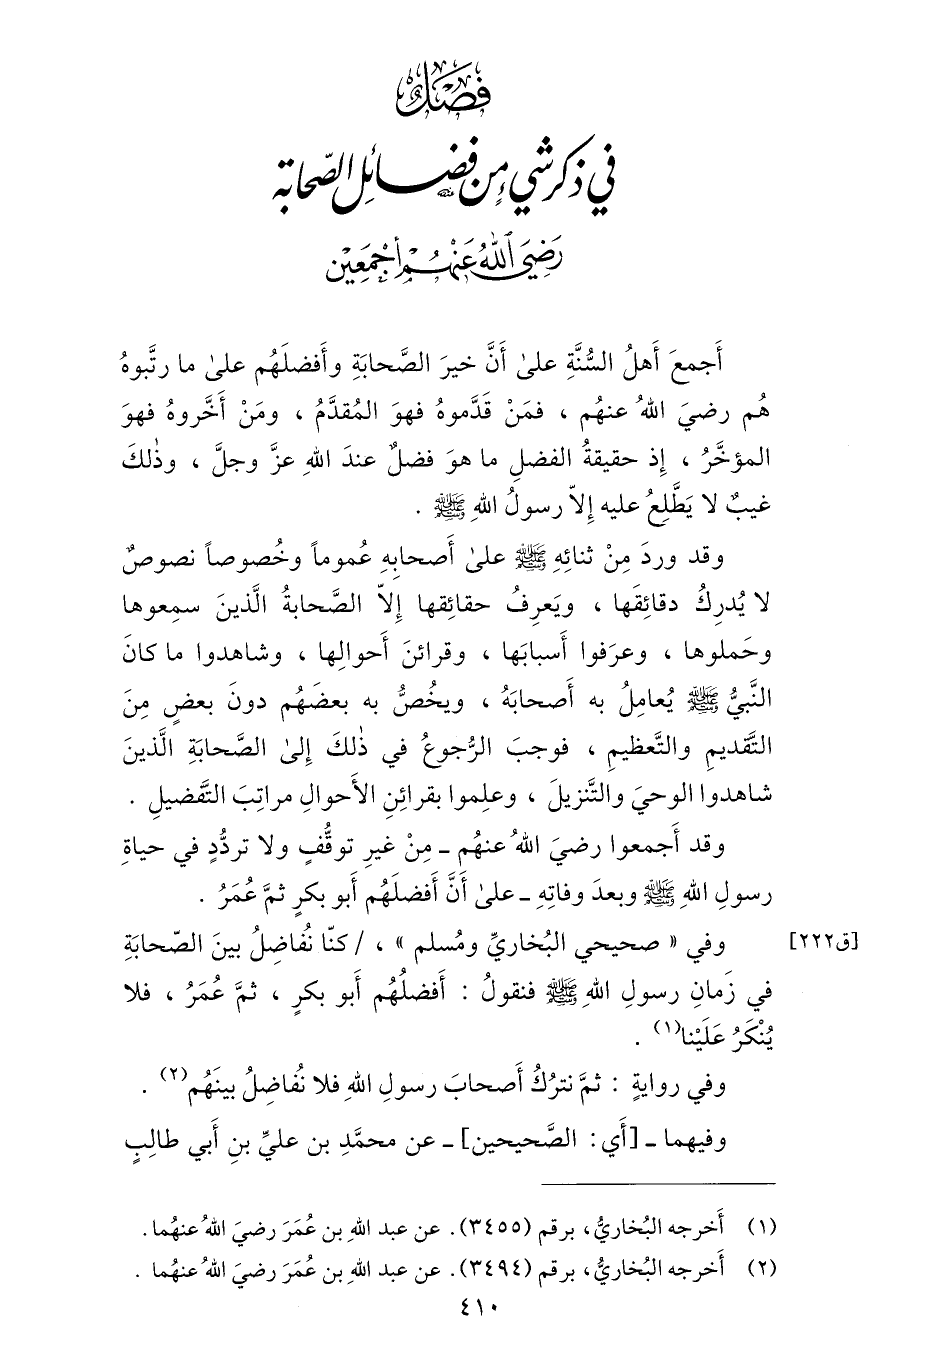 فَصْلٌ
في ذكر شيءٍ من فضائل الصّحابة
رَضِيَ اللهُ عَنْهُم أَجْمَعِين
أَجمعَ أَهلُ السُّنَّةِ علىٰ أَنَّ خيرَ الصَّحابَةِ وأَفضلَهُم علىٰ ما رتَّبوهُ
هُم رضيَ اللهُ عنهُم ، فمَنْ قَدَّموهُ فهوَ المُقدَّمُ ، ومَنْ أَخَّروهُ فهوَ
المؤخَّرُ ، إِذ حقيقةُ الفضلِ ما هوَ فضلٌ عندَ اللهِ عزَّ وجلَّ ، وذٰلكَ
غيبٌ لا يَطَّلِعُ عليه إِلاّ رسولُ اللهِ ﷺ .
وقد وردَ مِنْ ثنائِهِ ﷺ علىٰ أَصحابِهِ عُموماً وخُصوصاً نصوصٌ
لا يُدرِكُ دقائِقَها ، ويَعرِفُ حقائقها إِلاّ الصَّحابةُ الَّذينَ سمِعوها
وحَملوها ، وعرَفوا أَسبابَها ، وقرائنَ أَحوالِها ، وشاهدوا ما كانَ
النَّبيُّ ﷺ يُعامِلُ به أَصحابَهُ ، ويخُصُّ به بعضَهُم دونَ بعضٍ مِنَ
التَّقديمِ والتَّعظيمِ ، فوجبَ الرُّجوعُ في ذٰلكَ إِلىٰ الصَّحابةِ الَّذينَ
شاهدوا الوحيَ والتَّنزيلَ ، وعلِموا بقرائنِ الأَحوالِ مراتبَ التَّفضيلِ .
وقد أَجمعوا رضيَ اللهُ عنهُم ـ مِنْ غيرِ توقُّفٍ ولا تردُّدٍ في حياةِ
رسولِ اللهِ ﷺ وبعدَ وفاتِهِ ـ علىٰ أَنَّ أَفضلَهُم أَبو بكرٍ ثمَّ عُمَرُ .
وفي « صحيحي البُخاريِّ ومُسلم » ، / كنّا نُفاضِلُ بينَ الصّحابَةِ [ق٢٢٢]
في زَمانِ رسولِ اللهِ ﷺ فنقولُ : أَفضلُهُم أَبو بكرٍ ، ثمَّ عُمَرُ ، فلا
يُنْكَرُ عَلَيْنا(١) .
وفي روايةٍ : ثمَّ نترُكُ أَصحابَ رسولِ اللهِ فلا نُفاضِلُ بينَهُم(٢) .
وفيهما ـ [أَي: الصَّحيحين] ـ عن محمَّدِ بن عليِّ بنِ أَبي طالِبٍ
(١) أَخرجه البُخاريُّ، برقم (٣٤٥٥). عن عبد اللهِ بن عُمَرَ رضيَ اللهُ عنهُما.
(٢) أَخرجه البُخاريُّ، برقم (٣٤٩٤). عن عبد اللهِ بن عُمَرَ رضيَ اللهُ عنهُما .
٤١٠